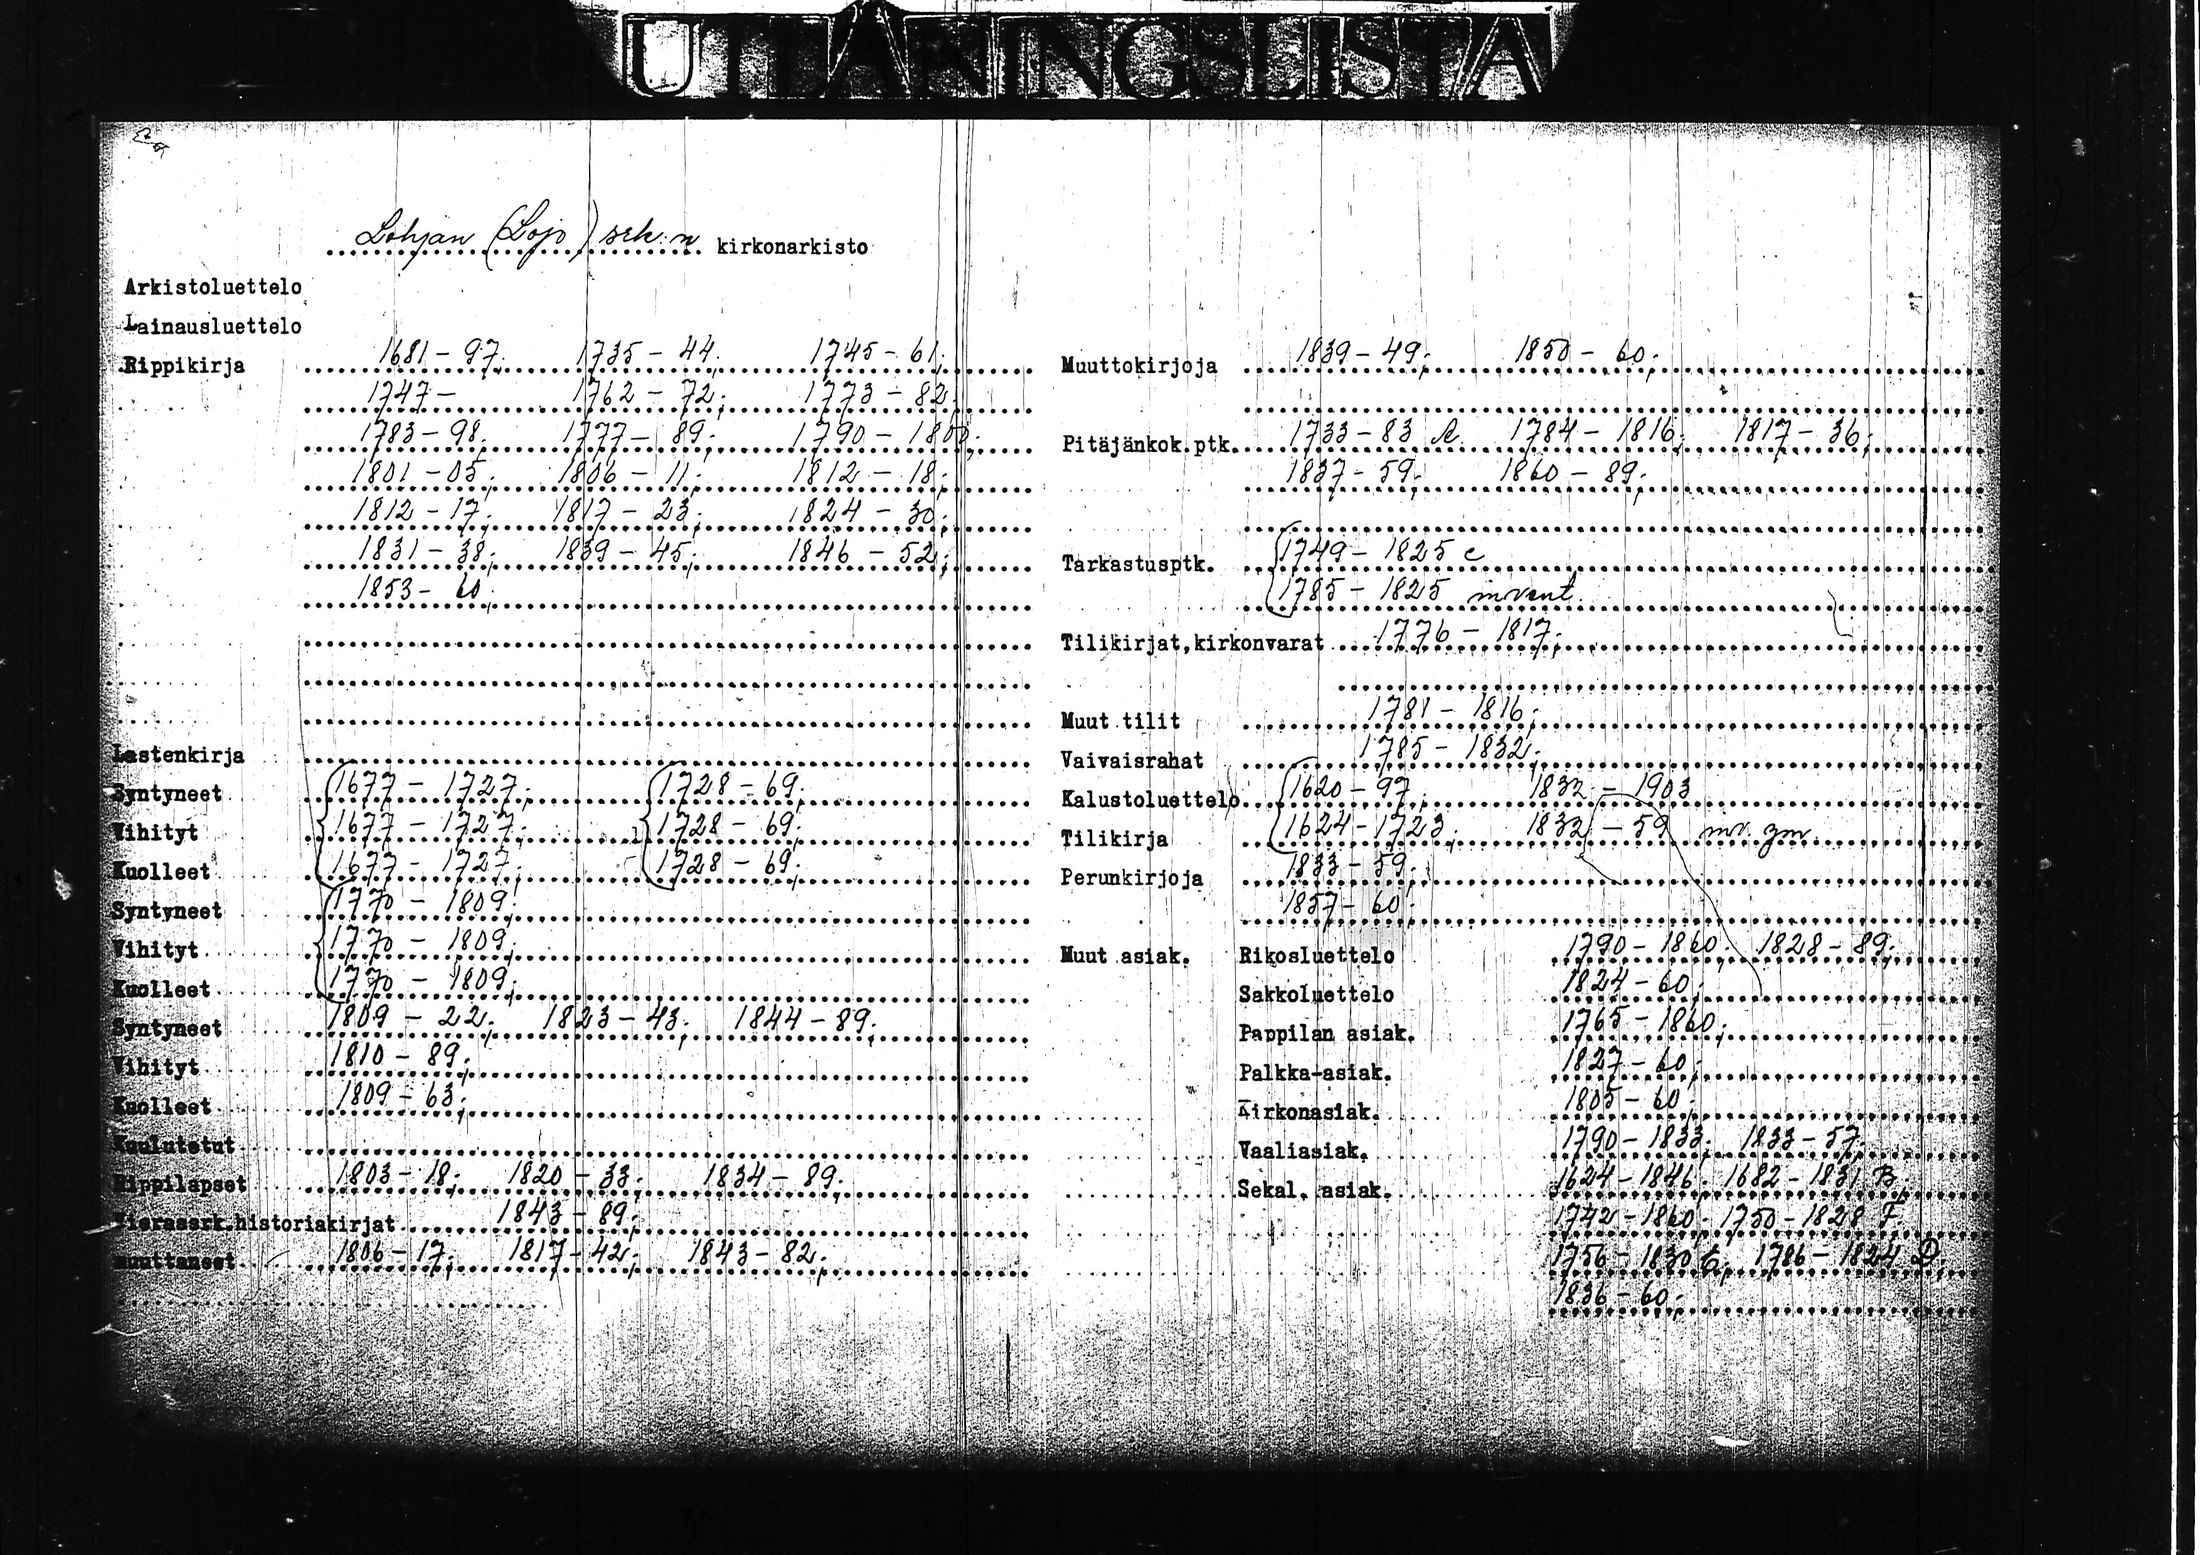 UTLÅNINGSLISTA
Lohjan (Lojo) srk:n kirkonarkisto
Arkistoluettelo
Lainausluettelo
Rippikirja 1681-97; 1735-44; 1745-61;
1747- 1762-72; 1773-82;
1783-98; 1777-89; 1790-1800;
1801-05; 1806-11; 1812-18;
1812-17; 1817-23; 1824-30;
1831-38; 1839-45; 1846-52;
1853-60;
Lastenkirja
Syntyneet 1677-1727; 1728-69;
Vihityt 1677-1727; 1728-69;
Kuolleet 1677-1727; 1728-69;
Syntyneet 1770-1809;
Vihityt 1770-1809;
Kuolleet 1770-1809;
Syntyneet 1809-22; 1823-43; 1844-89;
Vihityt 1810-89;
Kuolleet 1809-63;
Kuulutetut
Rippilapset 1803-18; 1820-33; 1834-89;
Vierassrk.historiakirjat 1843-89;
Muuttaneet 1806-17; 1817-42; 1843-82;
Muuttokirjoja 1839-49; 1850-60;
Pitäjänkok.ptk. 1733-83 A 1784-1816; 1817-36;
1837-59; 1860-89;
Tarkastusptk. 1749-1825 c
1785-1825 invent.
Tilikirjat,kirkonvarat 1776-1817;
Muut tilit 1781-1816;
Vaivaisrahat 1785-1832;
Kalustoluettelo 1620-97; 1832-1903
Tilikirja 1624-1723; 1832-59 inv. ym.
Perunkirjoja 1833-59;
1857-60;
Muut asiak. Rikosluettelo 1790-1860; 1828-89;
Sakkoluettelo 1824-60;
Pappilan asiak. 1765-1860;
Palkka-asiak. 1827-60;
Kirkonasiak. 1805-60;
Vaaliasiak. 1790-1833; 1833-57;
Sekal. asiak. 1624-1846; 1682-1831 B;
1742-1860; 1750-1828 F.
1756-1830 E; 1786-1824 D;
1836-60;